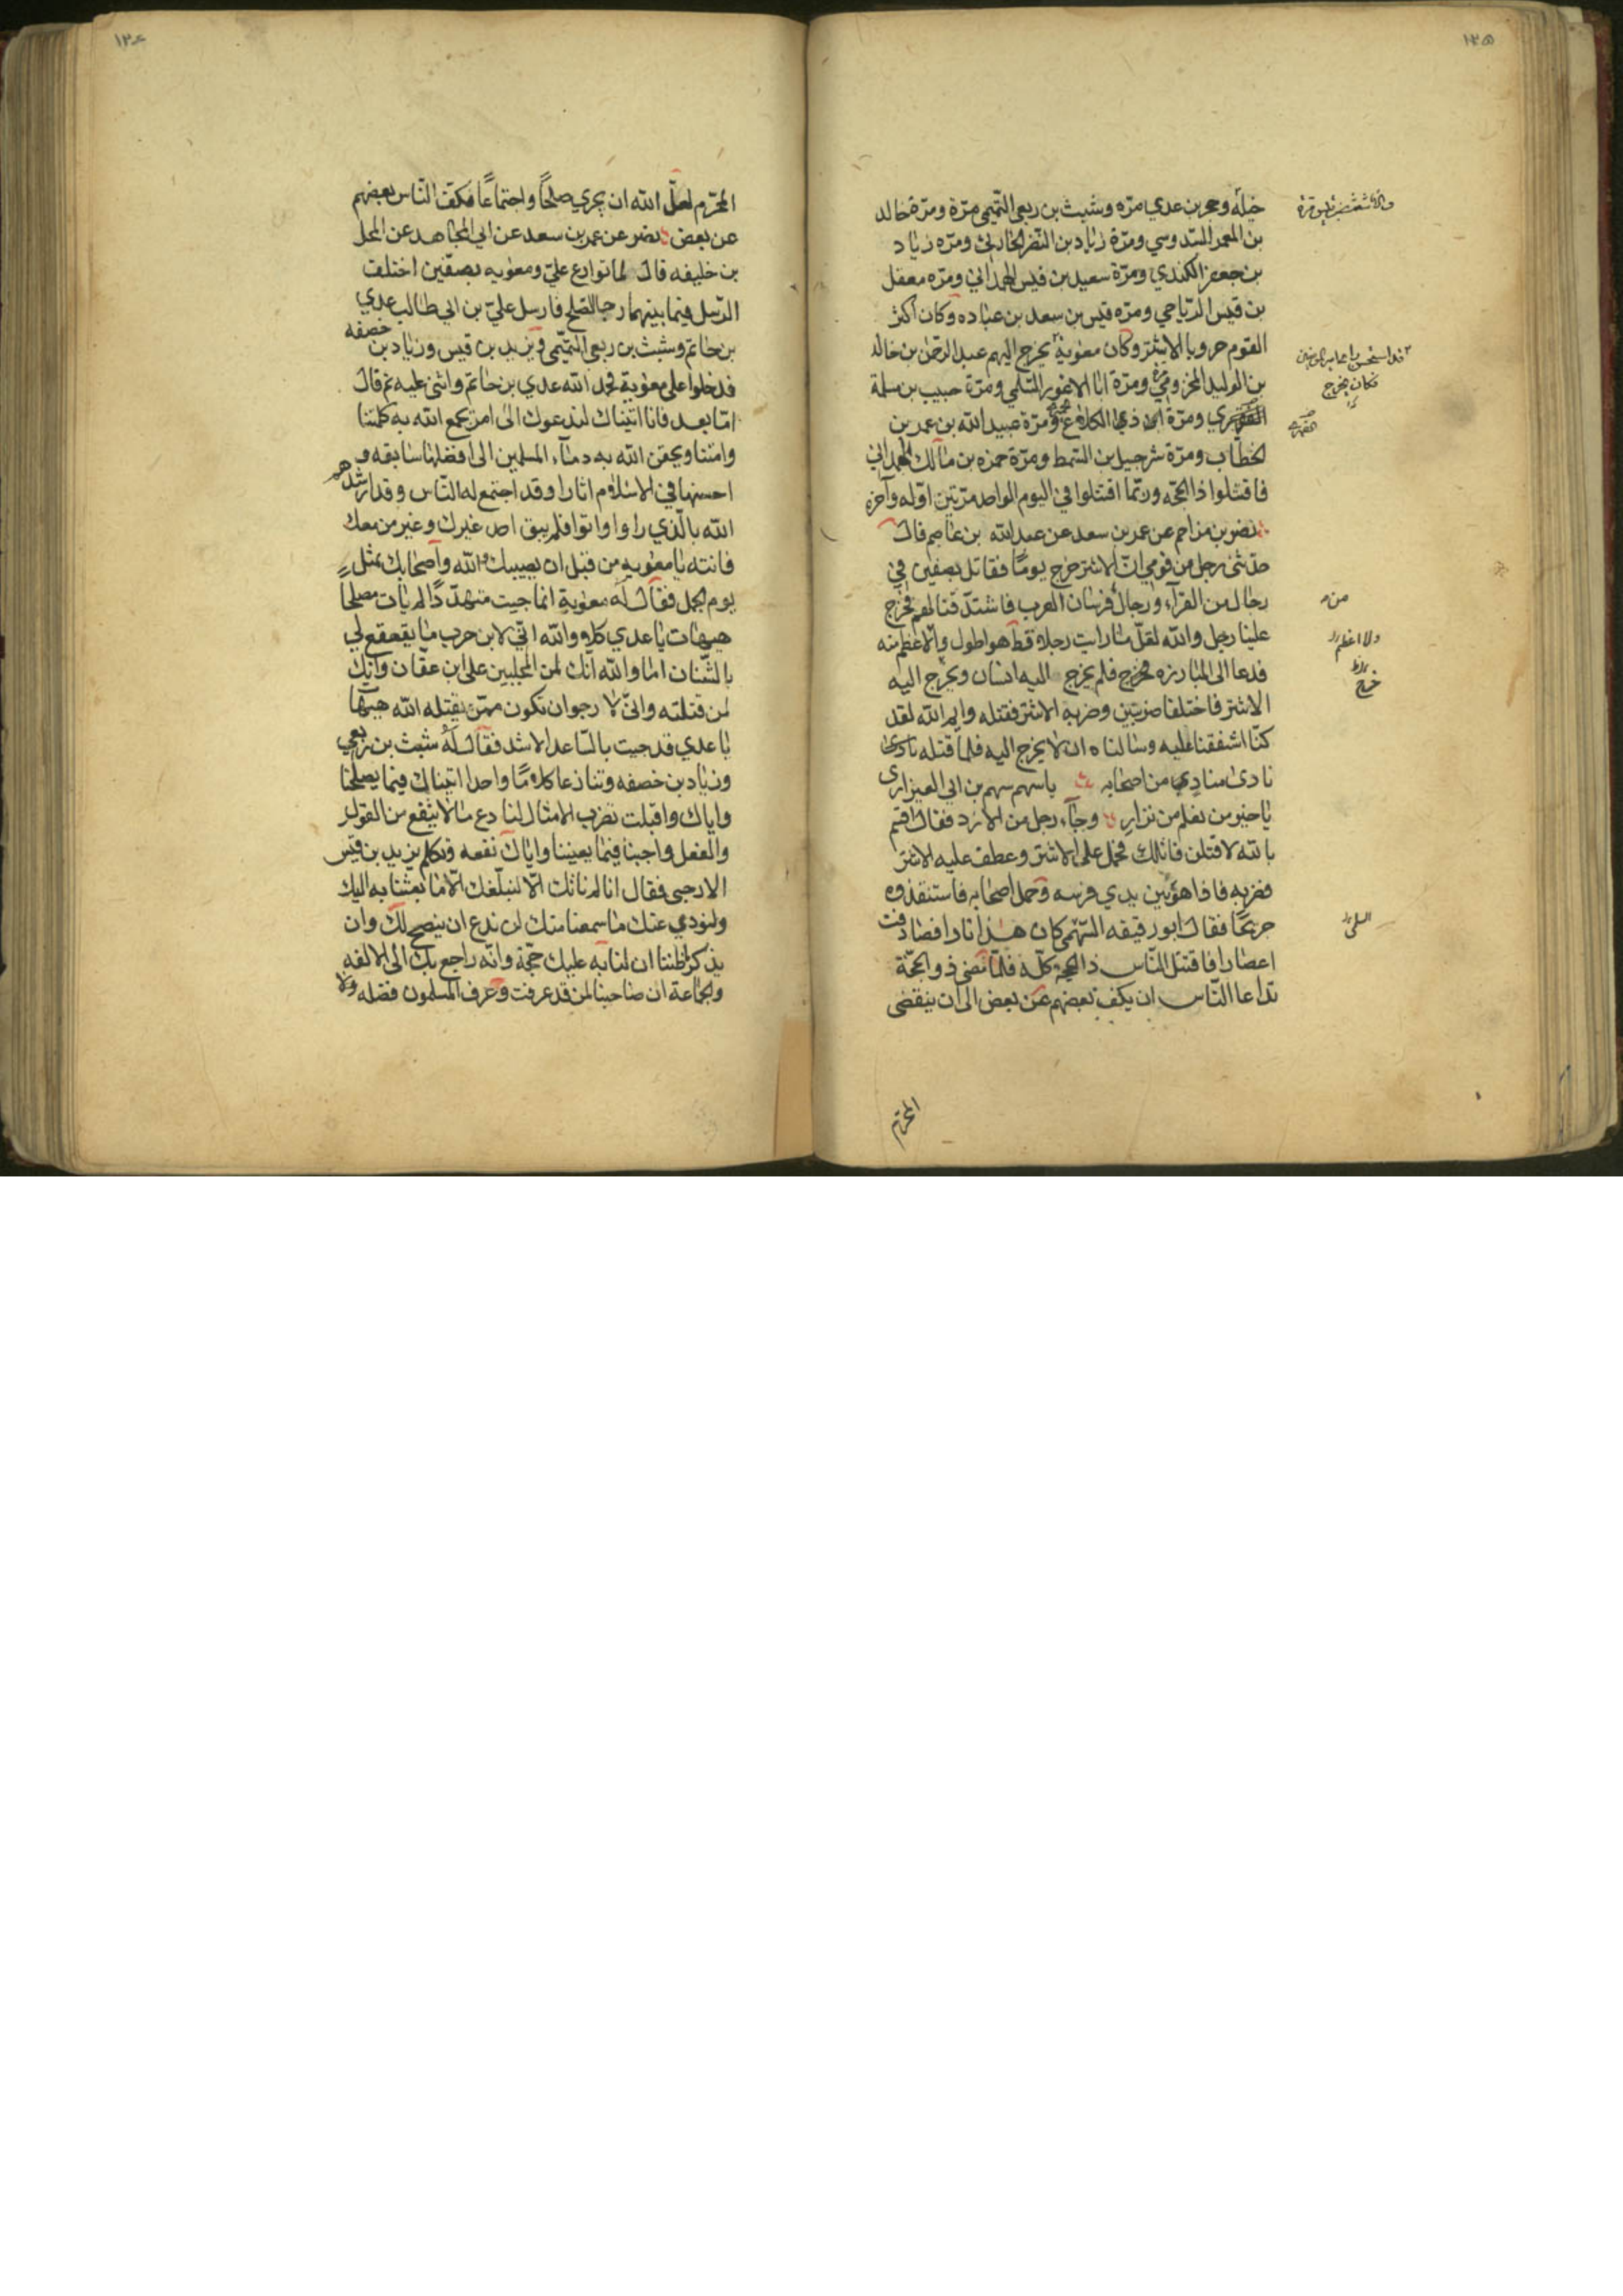 ١٢٥
خيله وحجر بن عدي مرّه وشبث بن ربعي التّميمي مرّة ومرّة خالد
بن المعمر السّدوسي ومرّة زياد بن النّضر الحارثي ومرّه زياد
بن جعفر الكندي ومرّة سعيد بن قيس الهمداني ومرّه معقل
بن قيس الرّياحي ومرّه قيس بن سعد بن عباده وكان اكثر
القوم حروبا الاشتر وكان معوية يخرج اليهم عبد الرّحمن بن خالد
بن الوليد المخزومي ومرّة ابا الاعور السّلمي ومرّة حبيب بن مسلمة
الفهري ومرّة ابن ذي الكلاع ومرّة عبيد الله بن عمر بن
الخطّاب ومرّة شرجيل بن السّمط ومرّة حمزه بن مالك الهمداني
فاقتلوا ذا الحجّه وربّما اقتتلوا في اليوم الواحد مرّتين اوّله وآخره
نصر بن مزاحم عن عمر بن سعد عن عبد الله بن عاصم قال
حدّثني رجل من قومي انّ الاشتر خرج يومًا فقاتل بصفين في
رجال من القرآء ورجال فرسان العرب فاشتدّ قتالهم فخرج
علينا رجل والله لقلّ ما رايت رجلا قط هو اطول ولا اعظم منه
فدعا الى المبارزه فخرج فلم يخرج اليه انسان ويخرج اليه
الاشتر فاختلفا ضربتين وضربه الاشتر فقتله وايم الله لقد
كنّا اشفقنا عليه وسالناه ان لا يخرج اليه فلما قتله نادى
نادى منادي من اصحابه يا سهم سهم بن ابي العيزارى
يا خير من نعلم من نزار وجآء رجل من الازد فقال اقسم
بالله لاقتلن قاتلك فحمل على الاشتر وعطف عليه الاشتر
فضربه فاذا هو بين يدي فرسه وحمل اصحابه فاستنقذوه
جريحًا فقال ابو رقيقه السّهمي كان هذا نارا فصادفت
اعصارا فاقتتل النّاس ذا الحجة كلّه فلمّا تقضى ذو الحجّة
تداعا النّاس ان يكف بعضهم عن بعض الى ان ينقضى
من
ولا اعظم
خرج
المحرّم
المحرّم لعلّ الله ان يجري صلحًا واجتماعًا فكف النّاس بعضهم
عن بعض نصر عن عمر بن سعد عن ابي المجاهد عن المحل
بن خليفه قال لما توادع عليّ ومعويه بصفّين اختلف
الرّسل فيما بينهما رجا الصّلح فارسل عليّ بن ابي طالب عدي
بن حاتم وشبث بن ربعي التّميمي ويزيد بن قيس وزياد بن خصفه
فدخلوا على معوية فحمد الله عدي بن حاتم واثنى عليه ثم قال
امّا بعد فانا اتيناك لندعوك الى امر يجمع الله به كلمتنا
وامتنا ويحقن الله به دمآء المسلمين الى افضلها سابقه و
احسنها في الاسلام اثارا وقد اجتمع له النّاس وقد ارشدهم
الله بالّذي راوا واتوا فلم يبق احد غيرك وغير من معك
فانته يا معويه من قبل ان يصيبك الله واصحابك بمثل
يوم الجمل فقال له معوية انما جيت متهدّدًا لم يات مصلحا
هيهات يا عدي كلا والله انّي لابن حرب ما يقعقع لي
بالشّنان اما والله انّك لمن المجلبين على ابن عفّان وانّك
لمن قتلته وانّي لارجو ان تكون ممّن يقتله الله هيهات
يا عدي قد جيت بالسّاعد الاشد فقال له شبث بن ربعي
وزياد بن خصفه وتنازعا كلامًا واحدا اتيناك فيما يصلحنا
واياك واقبلت تضرب الامثال لنا دع ما لا ينفع من القول
والفعل واجبنا فيما يعيننا واياك نفعه وتكلم يزيد بن قيس
الارحبي فقال انا لم ناتك الّا لنبلّغك الّا ما بعثنا به اليك
ولنودي عنك ما سمعنا منك لن ندع ان ينصح لك وان
يذكر ظننا ان لنا به عليك حجّة وانّه راجع بك الى الالفه
والجماعة ان صاحبنا لمن قد عرفت وعرف المسلمون فضله ولا